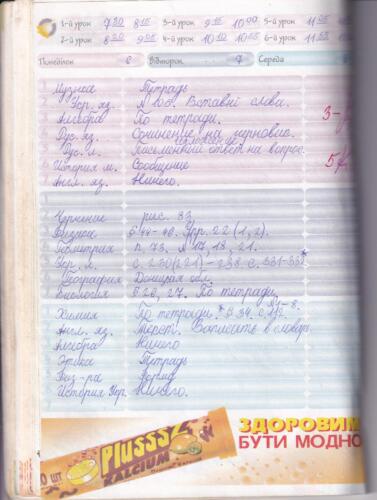 1-й урок 7 30 8 15 3-й урок 9 15 10 00 5-й урок 11 05
2-й урок 8 20 9 05 4-й урок 10 10 10 55 6-й урок 11 55
Понеділок 6 Вівторок 7 Середа
Музыка Тетрадь
Укр. яз. Вставні слова.
Алгебра По тетради.
Рус. яз. Сочинение на черновике.
изложение
Рус. л. Письменный ответ на вопрос.
История м. Сообщение
Англ. яз. Ничего.
Черчение рис. 83
Физика § 44-46. Упр. 22 (1, 2).
Геометрия п. 73, № 17, 18, 21.
Укр. л.
География Донецкая обл.
Биология § 26, 27. По тетради.
Химия По тетради.
Англ. яз. Текст. Выписать в словарь
Алгебра Ничего
Этика Тетрадь
Физ-ра Форма
История Укр. Ничего.
Plusssz
KALCIUM
ЗДОРОВИМ
БУТИ МОДНО